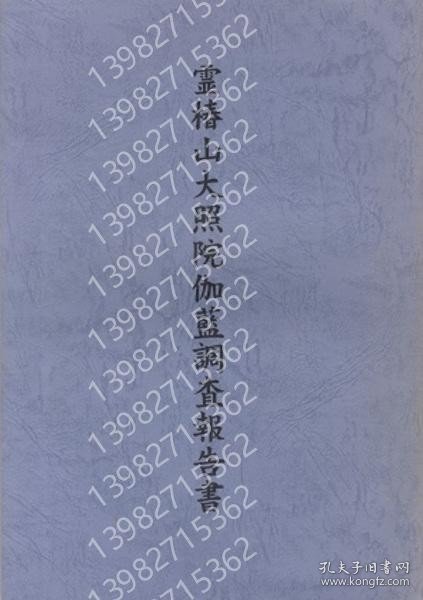 霊椿山大照院伽藍調査報告書
13982715362
13982715362
13982715362
13982715362
13982715362
13982715362
13982715362
13982715362
13982715362
13982715362
13982715362
孔夫子旧书网
www.kongfz.com